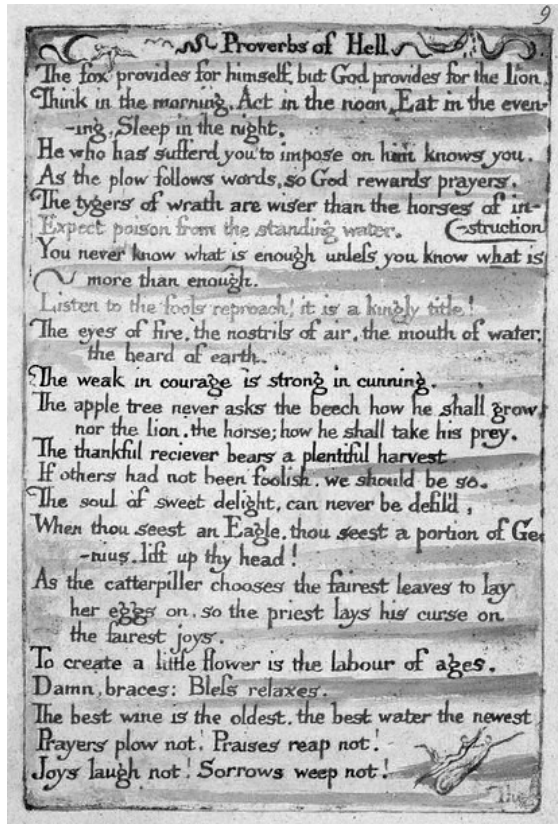 9
Proverbs of Hell
The fox provides for himself, but God provides for the lion.
Think in the morning, Act in the noon, Eat in the even-
-ing, Sleep in the night.
He who has sufferd you to impose on him knows you.
As the plow follows words, so God rewards prayers.
The tygers of wrath are wiser than the horses of in-
Expect poison from the standing water. -struction
You never know what is enough unless you know what is
more than enough.
Listen to the fools reproach! it is a kingly title!
The eyes of fire, the nostrils of air, the mouth of water,
the beard of earth.
The weak in courage is strong in cunning.
The apple tree never asks the beech how he shall grow,
nor the lion, the horse; how he shall take his prey.
The thankful reciever bears a plentiful harvest
If others had not been foolish, we should be so.
The soul of sweet delight, can never be defil'd,
When thou seest an Eagle, thou seest a portion of Ge-
-nius, lift up thy head!
As the catterpiller chooses the fairest leaves to lay
her eggs on, so the priest lays his curse on
the fairest joys.
To create a little flower is the labour of ages.
Damn, braces: Bless relaxes.
The best wine is the oldest, the best water the newest
Prayers plow not! Praises reap not!
Joys laugh not! Sorrows weep not!
The